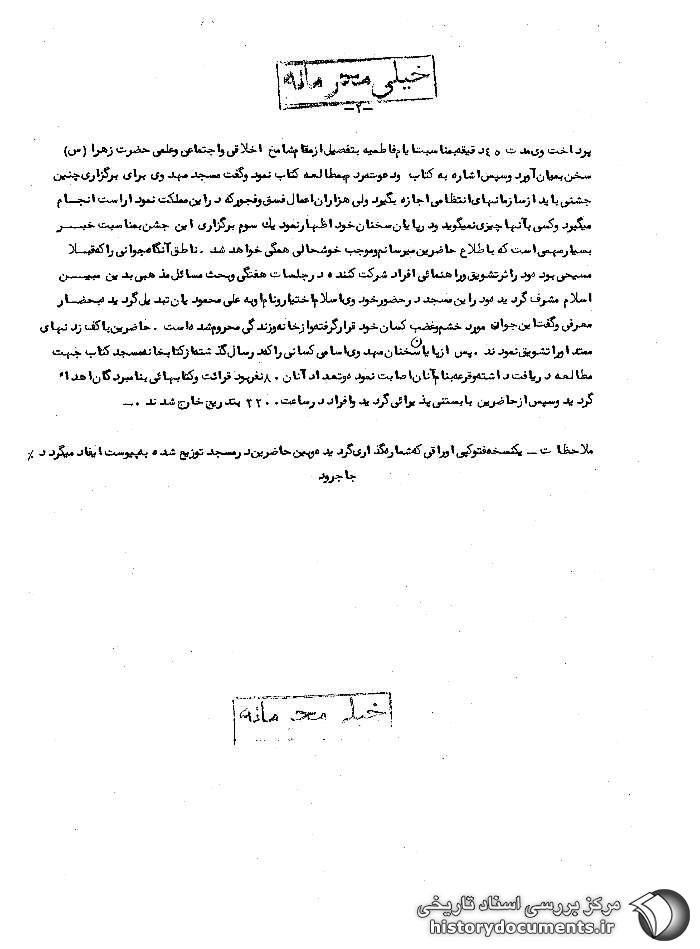 خیلی محرمانه
-۲-
پرداخت وی مدت ۴۵ دقیقه بمناسبت ایام فاطمیه بتفصیل از مقام شامخ اخلاقی و اجتماعی و علمی حضرت زهرا (س)
سخن بمیان آورد و سپس اشاره به کتاب و دعوت مردم بمطالعه کتاب نمود و گفت مسجد مهدوی برای برگزاری چنین
جشنی باید از سازمانهای انتظامی اجازه بگیرد ولی هزاران اعمال فسق و فجور که در این مملکت نمودار است انجام
میگیرد و کسی بآنها چیزی نمیگوید و در پایان سخنان خود اظهار نمود یك سوم برگزاری این جشن بمناسبت خبر
بسیار مهمی است که باطلاع حاضرین میرسانم و موجب خوشحالی همگی خواهد شد . ناطق آنگاه جوانی را که قبلا
مسیحی بوده و در اثر تشویق و راهنمائی افراد شرکت کننده در جلسات هفتگی و بحث مسائل مذهبی بدین مبین
اسلام مشرف گردیده و در این مسجد در حضور خود وی اسلام اختیار و نام او به علی محمودیان تبدیل گردیده بحضار
معرفی و گفت این جوان مورد خشم و غضب کسان خود قرار گرفته و از خانه و زندگی محروم شده است . حاضرین با کف زدنهای
ممتد او را تشویق نمودند . پس از پایان سخنان مهدوی اسامی کسانی را که در سال گذشته از کتابخانه مسجد کتاب جهت
مطالعه دریافت داشته و قرعه بنام آنان اصابت نموده و تعداد آنان ۸۰ نفر بود قرائت و کتابهائی بنامبردگان اهداء
گردید و سپس از حاضرین با بستنی پذیرائی گردید و افراد در ساعت ۲۲۰۰ بتدریج خارج شدند .ــ
ملاحظات ــ یکنسخه فتوکپی اوراقی که شماره گذاری گردیده و بین حاضرین در مسجد توزیع شده به پیوست ایفاد میگردد ٪
جاجرود
خیلی محرمانه
مرکز بررسی اسناد تاریخی
historydocuments.ir